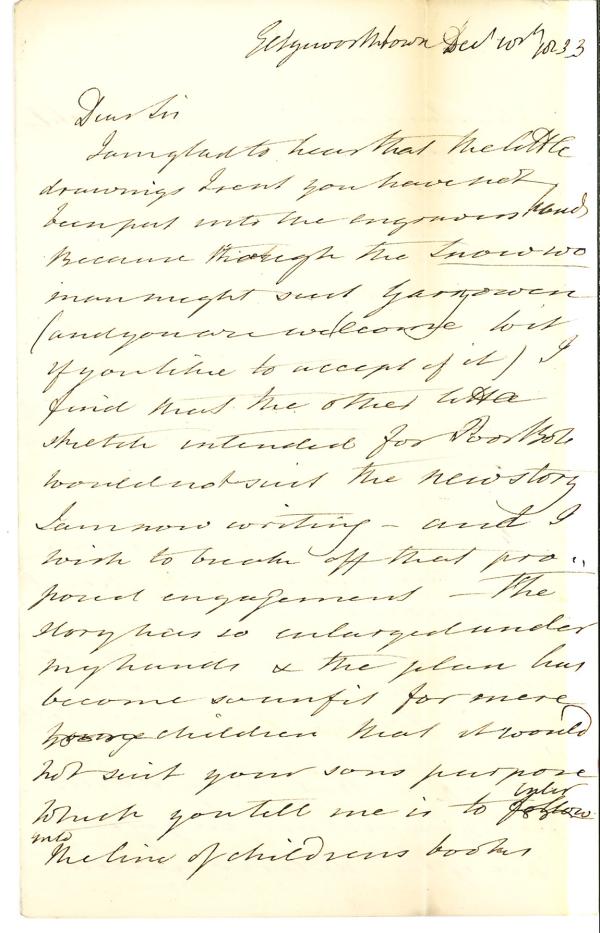 Edgeworthtown Decr 10th 1833
Dear Sir
I am glad to hear that the little
drawings I sent you have not
been put into the engravers hands
Because though the Snow wo
man might suit Garryowen
(and you are welcome to it
if you like to accept of it) I
find that the other little
sketch intended for Poor Bob
would not suit the new story
I am now writing – and I
wish to break off that pro..
posed engagement – The
story has so enlarged under
my hands & the plan has
become so unfit for mere
young children that it would
not suit your sons purpose
which you tell me is to follow enter
into
the line of childrens books